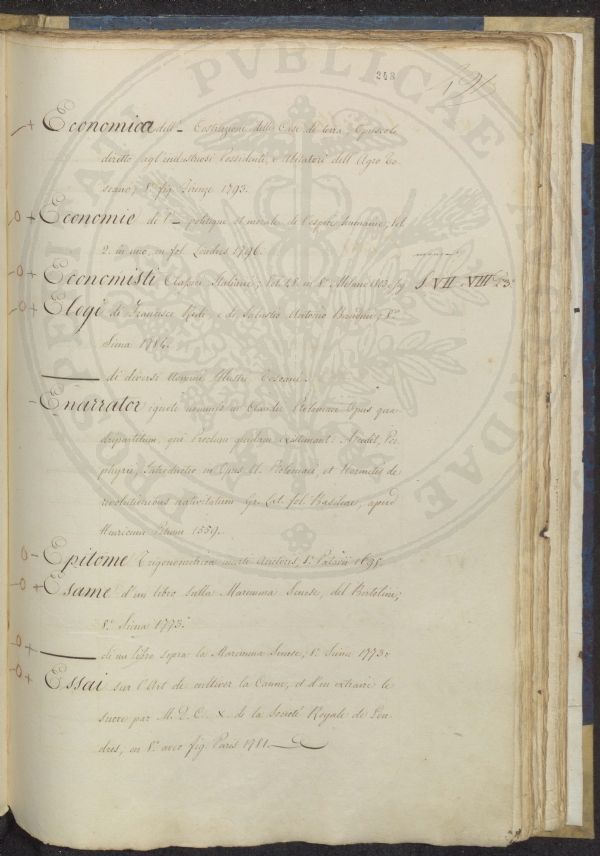 248
Economica dell'— Costruzione delle Case di terra, Opuscolo
diretto agl'industriosi Possidenti, e Abitatori dell'Agro To-
scano; 8.º fig. Firenze 1793.
Economie de l'— politique et morale de l'espèce humaine; Vol.
2. in uno, en fol. Londres 1796.
Economisti Classici Italiani; Vol. 48. in 8.º Milano 1803 e seg.
S VII. VIII.
Elogi di Francesco Redi e di Salustio Antonio Bandini; 8.º
Siena 1784.
—— di diversi Uomini Illustri Toscani.
Enarrator ignoti nominis in Claudii Ptolemaei Opus qua-
dripartitum, qui Proclum quidam existimant. Accedit, Por-
phyrii, Introductio in Opus Cl. Ptolemaei, et Hermetis de
revolutionibus nativitatum Gr. Lat. fol. Basileae, apud
Henricum Petrum 1559.
Epitome Trigonometrica incerti Auctoris, 8.º Patavii 1695.
Esame d'un libro sulla Maremma Senese, del Bertolini;
8.º Siena 1775.
—— di un libro sopra la Maremma Senese; 8.º Siena 1775.
Essai sur l'Art de cultiver la Canne, et d'en extraire le
sucre par M. D. C. X. de la Société Royale de Lon-
dres, en 8.º avec fig. Paris 1781.